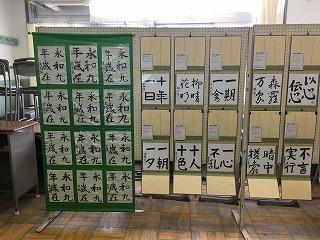 以心
伝心
森羅
万象
一期
一会
柳暗
花明
十年
一日
不言
実行
暗中
模索
一心
不乱
十人
十色
一朝
一夕
永和九
年歳在
永和九
年歳在
永和九
年歳在
永和九
年歳在
永和九
年歳在
永和九
年歳在
永和九
年歳在
永和九
年歳在
永和九
年歳在
永和九
年歳在
永和九
年歳在
永和九
年歳在